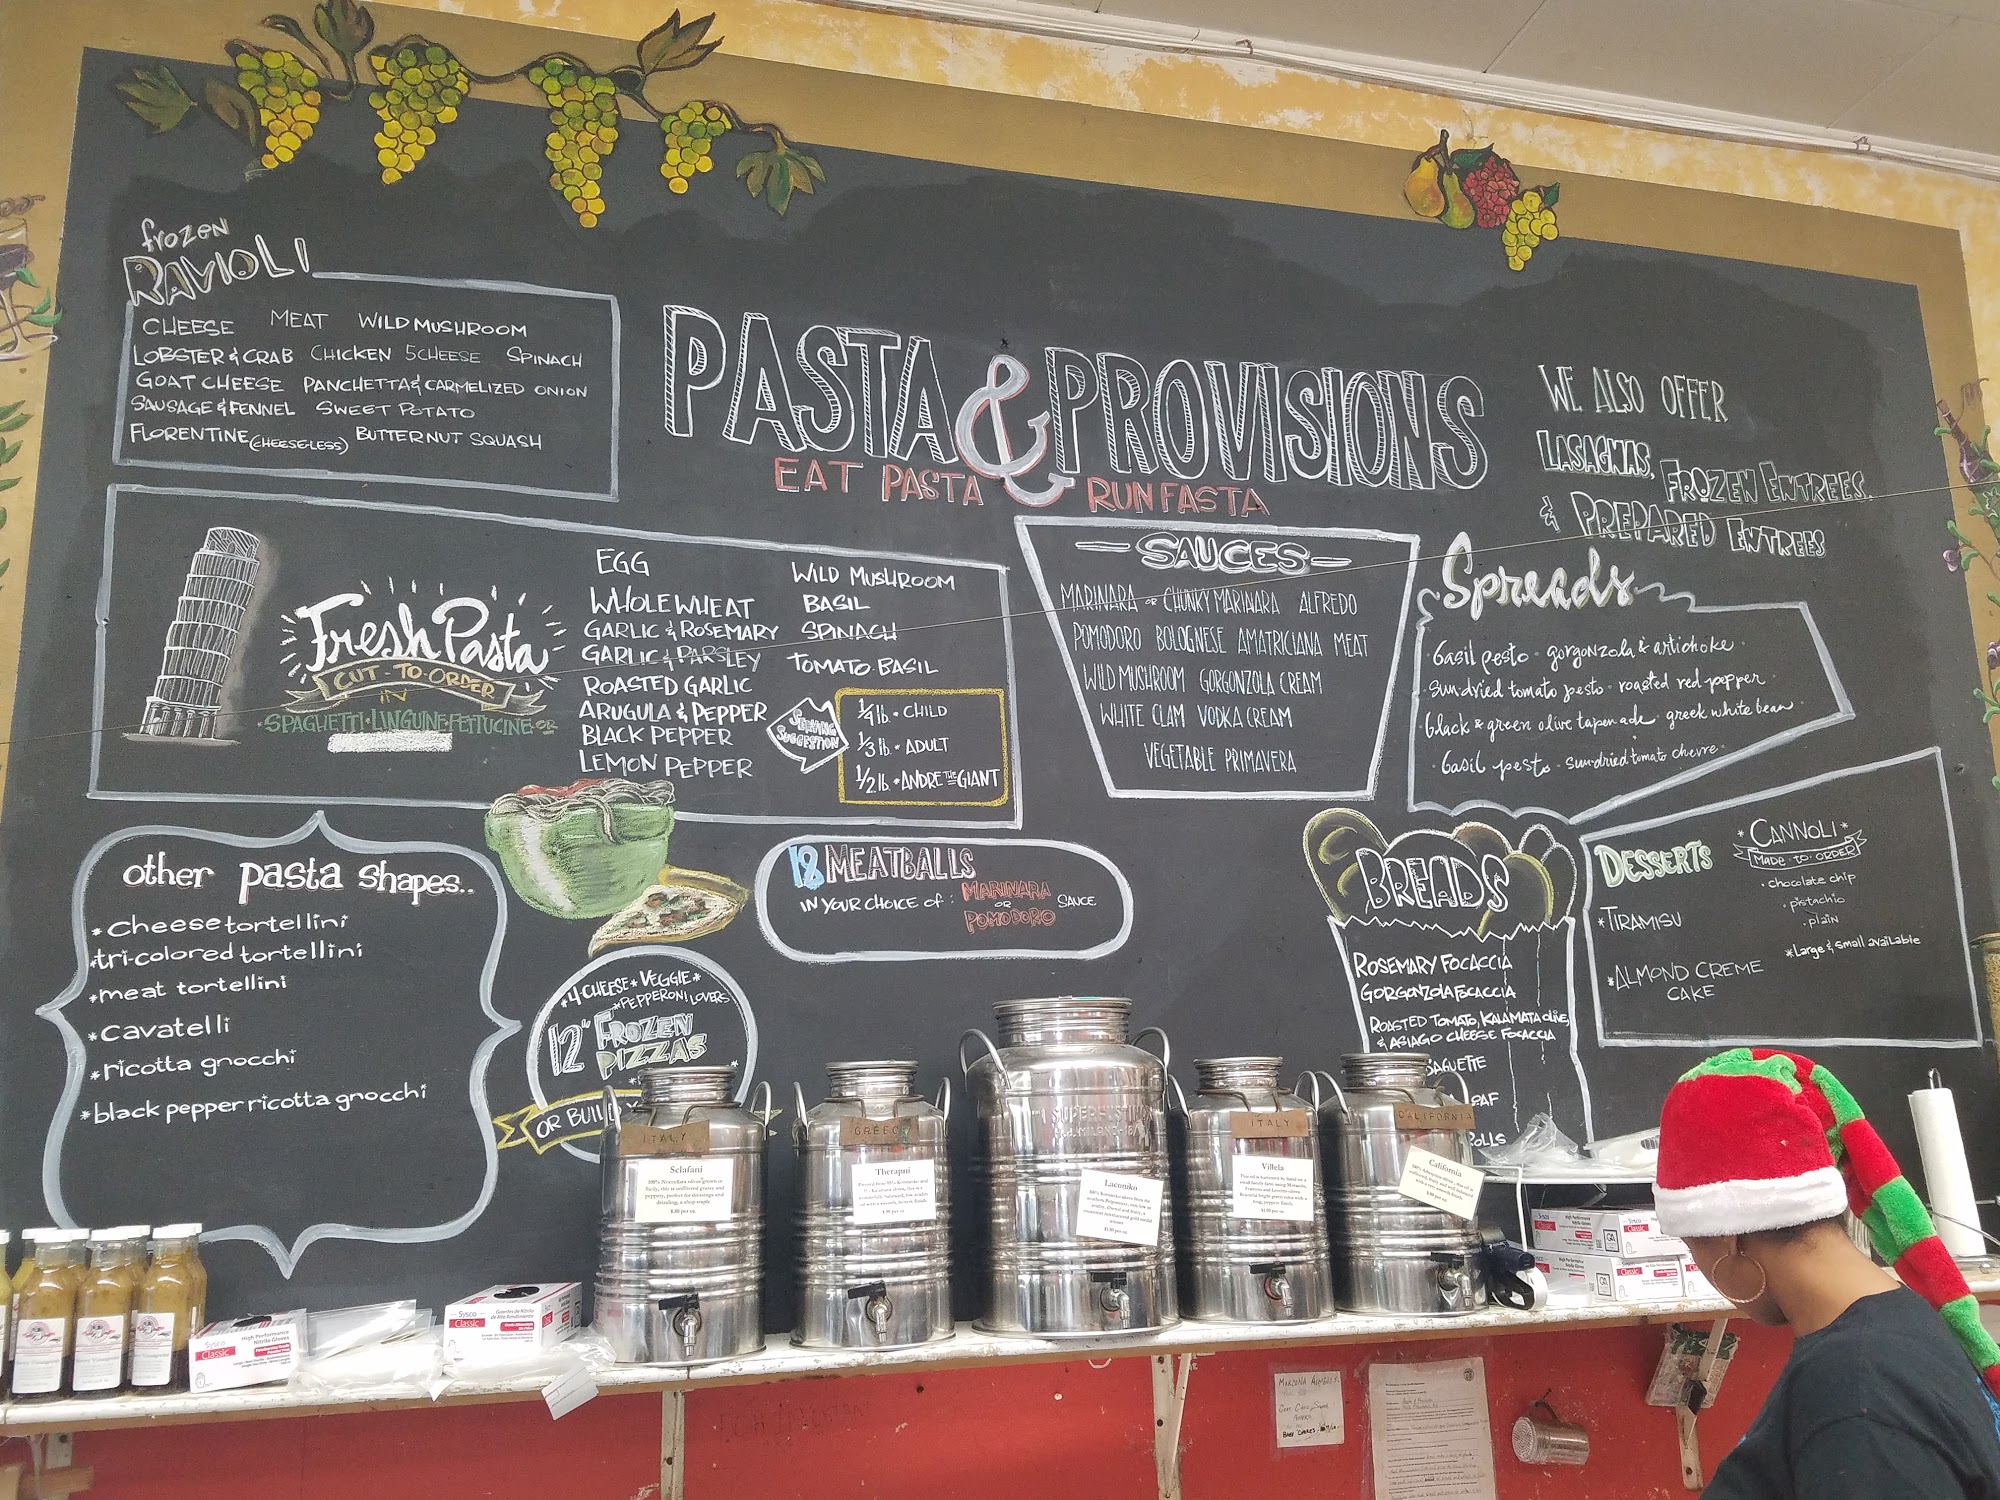 frozen
RAVIOLI
CHEESE MEAT WILD MUSHROOM
LOBSTER & CRAB CHICKEN 5CHEESE SPINACH
GOAT CHEESE PANCHETTA & CARMELIZED ONION
SAUSAGE & FENNEL SWEET POTATO
FLORENTINE (CHEESELESS) BUTTERNUT SQUASH
PASTA & PROVISIONS
EAT PASTA RUN FASTA
WE ALSO OFFER
LASAGNAS, FROZEN ENTREES,
& PREPARED ENTREES
Fresh Pasta
CUT-TO-ORDER
IN
SPAGHETTI • LINGUINE • FETTUCINE OR
EGG
WHOLE WHEAT
GARLIC & ROSEMARY
GARLIC & PARSLEY
ROASTED GARLIC
ARUGULA & PEPPER
BLACK PEPPER
LEMON PEPPER
WILD MUSHROOM
BASIL
SPINACH
TOMATO BASIL
SERVING
SUGGESTION
1/4 lb. • CHILD
1/3 lb. • ADULT
1/2 lb. • ANDRE THE GIANT
SAUCES
MARINARA OR CHUNKY MARINARA ALFREDO
POMODORO BOLOGNESE AMATRICIANA MEAT
WILD MUSHROOM GORGONZOLA CREAM
WHITE CLAM VODKA CREAM
VEGETABLE PRIMAVERA
Spreads
• basil pesto • gorgonzola & artichoke •
• sun-dried tomato pesto • roasted red pepper •
• black & green olive tapenade • greek white bean •
• basil pesto • sun-dried tomato chevre •
other pasta shapes..
* cheese tortellini
* tri-colored tortellini
* meat tortellini
* cavatelli
* ricotta gnocchi
* black pepper ricotta gnocchi
18 MEATBALLS
IN YOUR CHOICE of: MARINARA OR POMODORO SAUCE
* 4 CHEESE * VEGGIE *
* PEPPERONI LOVERS
12" FROZEN
PIZZAS
OR BUILD
BREADS
ROSEMARY FOCACCIA
GORGONZOLA FOCACCIA
ROASTED TOMATO, KALAMATA OLIVE,
& ASIAGO CHEESE FOCACCIA
BAGUETTE
DESSERTS
* TIRAMISU
* ALMOND CREME
CAKE
* CANNOLI *
MADE-TO-ORDER
• chocolate chip
• pistachio
• plain
* Large & small available
ITALY
Sclafani
GREECE
Therapni
Laconiko
ITALY
Villela
CALIFORNIA
California
Sysco
Classic
High Performance
Nitrile Gloves
Sysco
Classic
Guantes de Nitrilo
de Alto Rendimiento
MARCONA ALMONDS